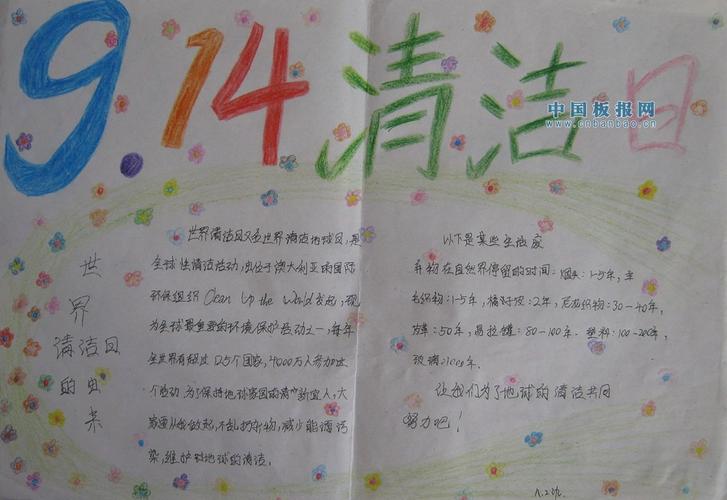 9.14清洁日
中国板报网
www.cnbanbao.cn
世界清洁日的由来
世界清洁日又名世界清洁地球日，是
全球性清洁活动，由位于澳大利亚的国际
环保组织 Clean Up the World 发起，现
为全球最重要的环境保护活动之一，每年
全世界有超过125个国家，4000万人参加这
个活动 为了保持地球家园的清洁宜人，大
家要从我做起，不乱扔弃物，减少能源污
染，维护对地球的清洁。
以下是某些生活废
弃物在自然界停留的时间：烟头：1-5年，羊
毛织物：1-5年，橘子皮：2年，尼龙织物：30-40年，
皮革：50年，易拉罐：80-100年，塑料：100-200年，
玻璃：1000年。
让我们为了地球的清洁共同
努力吧！